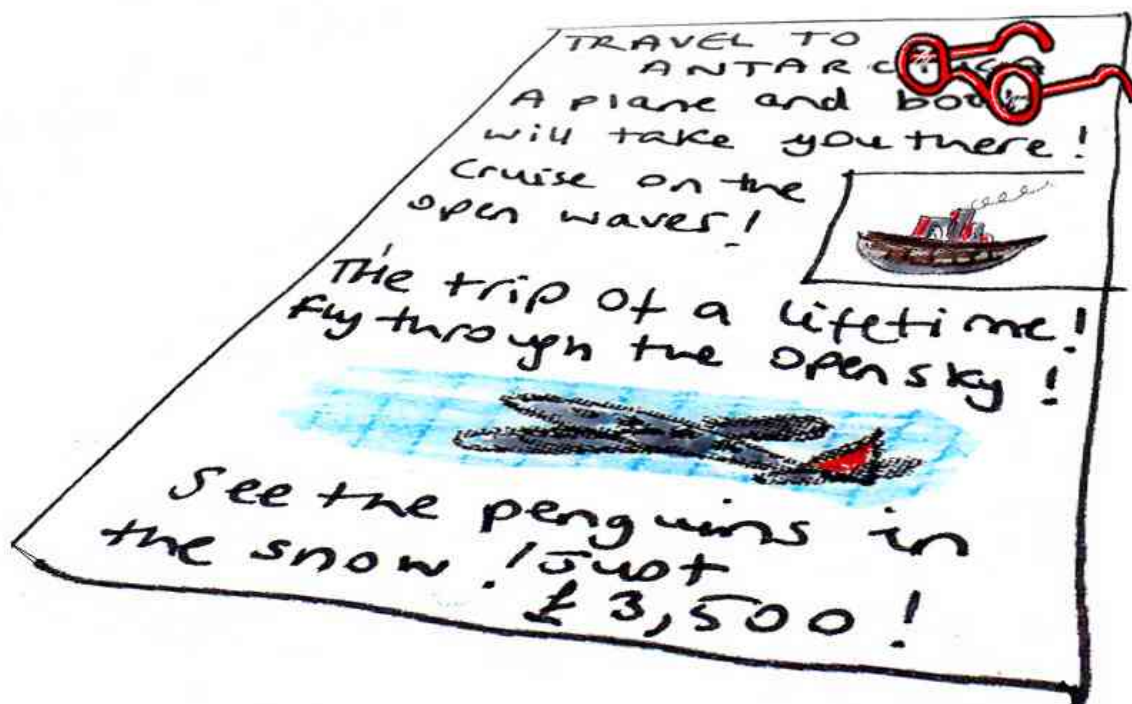 TRAVEL TO
ANTARCTICA
A plane and boat
will take you there!
Cruise on the
open waves!
The trip of a lifetime!
Fly through the open sky!
See the penguins in
the snow! Just
£3,500!